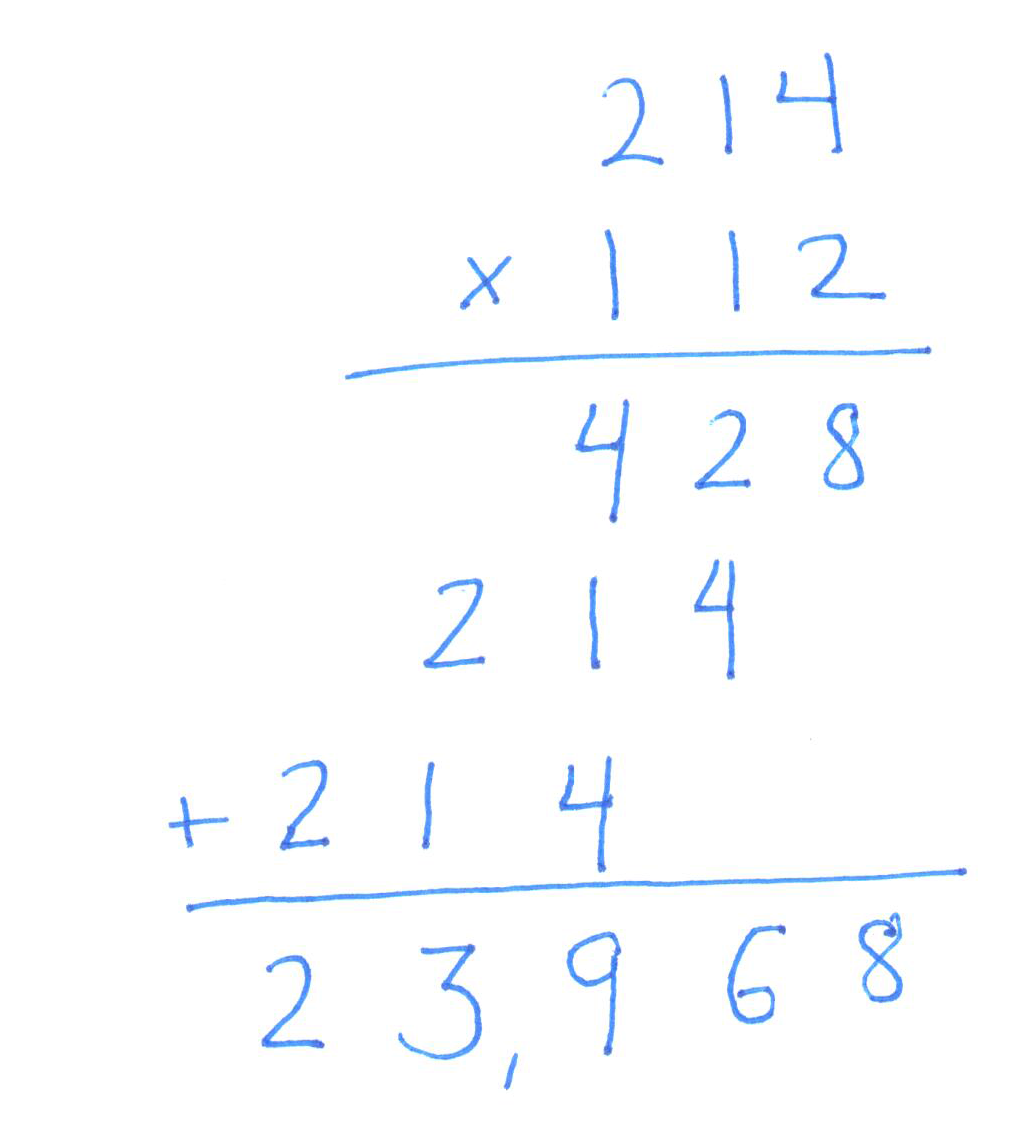 214
x 112
428
214
+ 214
23,968